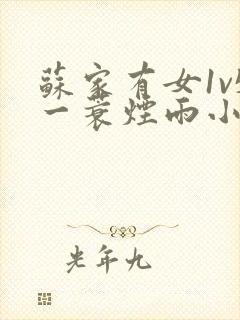 蘇家有女1v
一蓑煙雨小
光年九